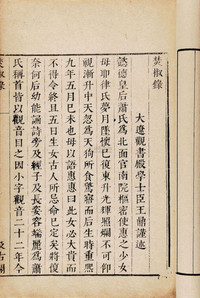 焚椒錄
大遼觀書殿學士臣王鼎謹述
懿德皇后蕭氏為北面官南院樞密使惠之少女
母耶律氏夢月墜懷已復東升光輝照爛不可仰
視漸升中天忽為天狗所食驚寤而后生時重熙
九年五月己未也母以語惠惠曰此女必大貴而
不得令終且五日生女古人所忌命已定矣將復
奈何后幼能誦詩旁及經子及長姿容端麗為蕭
氏稱首皆以觀音目之因小字觀音二十二年今